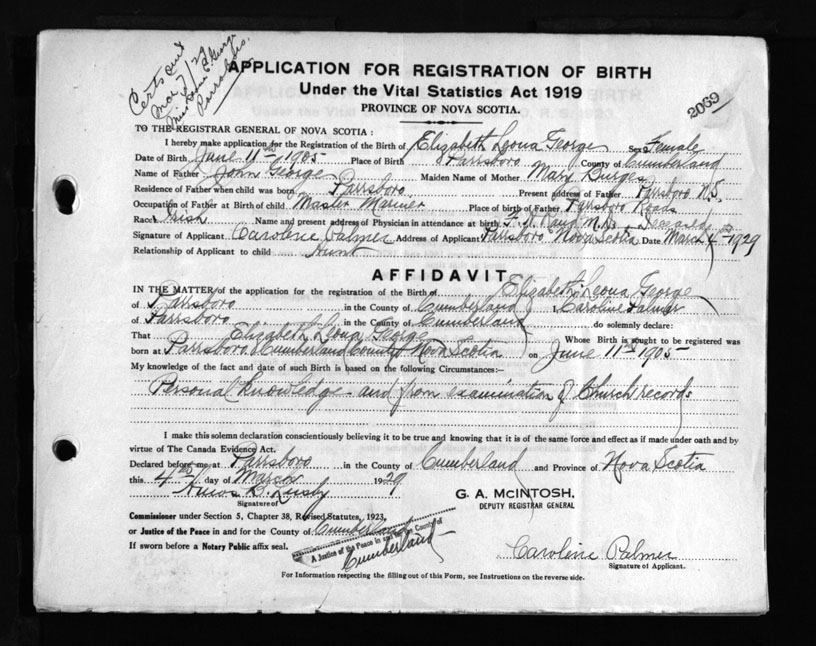 Certs sent
Mar 7/29
Miss Leona E. George
Parrsboro.
APPLICATION FOR REGISTRATION OF BIRTH
Under the Vital Statistics Act 1919
PROVINCE OF NOVA SCOTIA.
2069
TO THE REGISTRAR GENERAL OF NOVA SCOTIA :
I hereby make application for the Registration of the Birth of Elizabeth Leona George Sex Female
Date of Birth June 11th 1905 Place of Birth Parrsboro County of Cumberland
Name of Father John George Maiden Name of Mother Mary Burges
Residence of Father when child was born Parrsboro Present address of Father Parrsboro N.S.
Occupation of Father at Birth of child Master Mariner Place of birth of Father Parrsboro Roads
Race Irish Name and present address of Physician in attendance at birth F. A. Rand M.D. Deceased
Signature of Applicant Carolene Palmer Address of Applicant Parrsboro Nova Scotia Date March 4th 1929
Relationship of Applicant to child Aunt
AFFIDAVIT
IN THE MATTER of the application for the registration of the Birth of Elizabeth Leona George
of Parrsboro in the County of Cumberland I, Caroline Palmer
of Parrsboro in the County of Cumberland do solemnly declare:
That Elizabeth Leona George Whose Birth is sought to be registered was
born at Parrsboro Cumberland County Nova Scotia on June 11th 1905
My knowledge of the fact and date of such Birth is based on the following Circumstances:—
Personal knowledge and from examination of Church records
I make this solemn declaration conscientiously believing it to be true and knowing that it is of the same force and effect as if made under oath and by
virtue of The Canada Evidence Act.
Declared before me at Parrsboro in the County of Cumberland and Province of Nova Scotia
this 4th day of March 1929
Amos B. Lusby
G. A. McINTOSH,
DEPUTY REGISTRAR GENERAL
Signature of
Commissioner under Section 5, Chapter 38, Revised Statutes, 1923,
or Justice of the Peace in and for the County of Cumberland
A Justice of the Peace in and for the County of
Cumberland
If sworn before a Notary Public affix seal.
Carolene Palmer
Signature of Applicant.
For Information respecting the filling out of this Form, see Instructions on the reverse side.